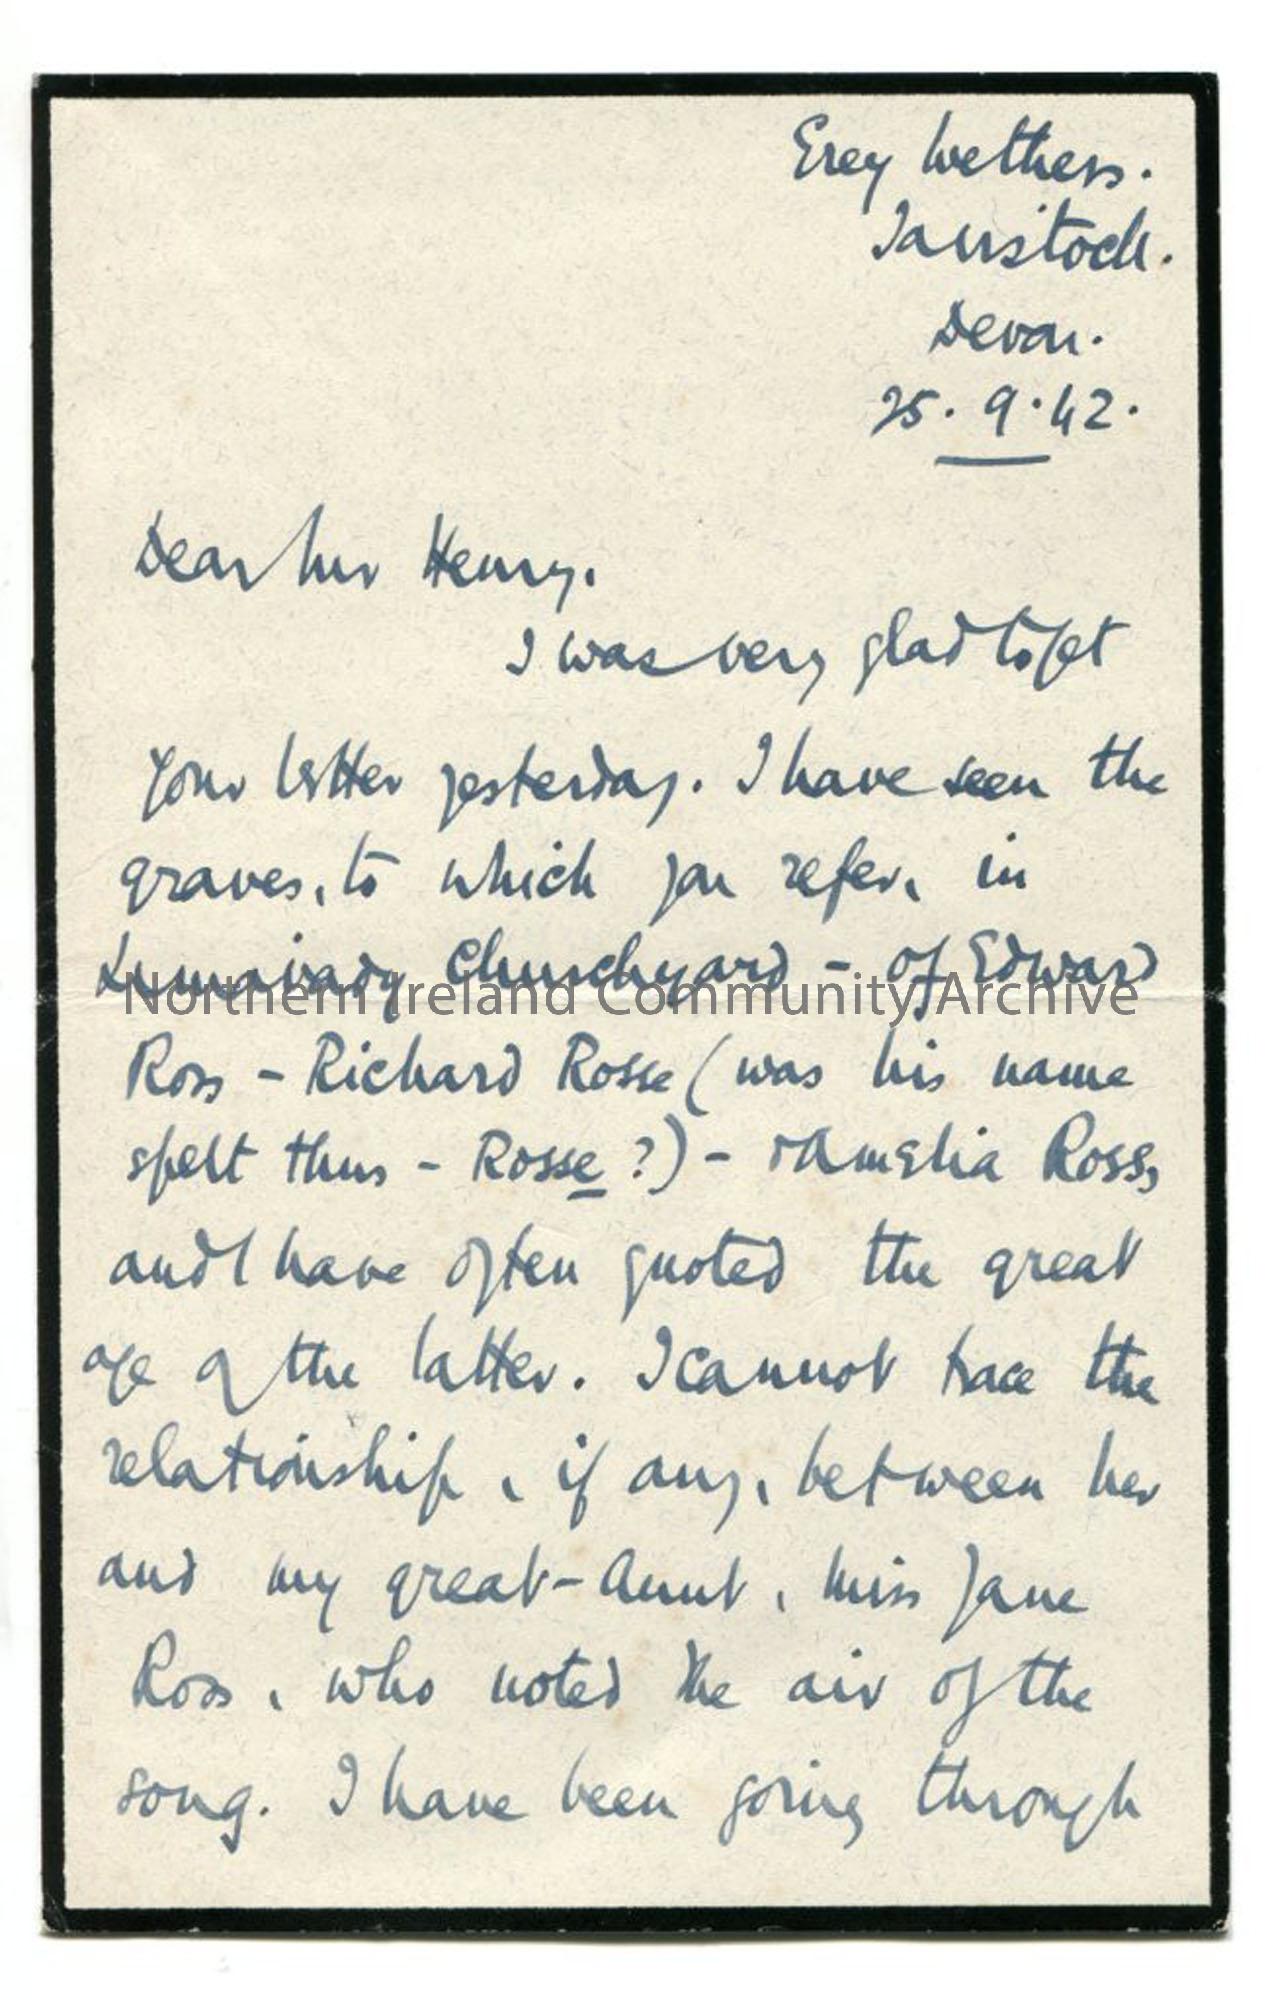 Grey Wethers.
Tavistock.
Devon.
25. 9. 42.
Dear Mr Henry.
I was very glad to get
your letter yesterday. I have seen the
graves, to which you refer, in
Limavady Churchyard - of Edward
Northern Ireland Community Archive
Ross - Richard Rosse (was his name
spelt thus - Rosse ?) - & Amelia Ross,
and I have often quoted the great
age of the latter. I cannot trace the
relationship, if any, between her
and my great-Aunt, Miss Jane
Ross, who noted the air of the
song. I have been going through